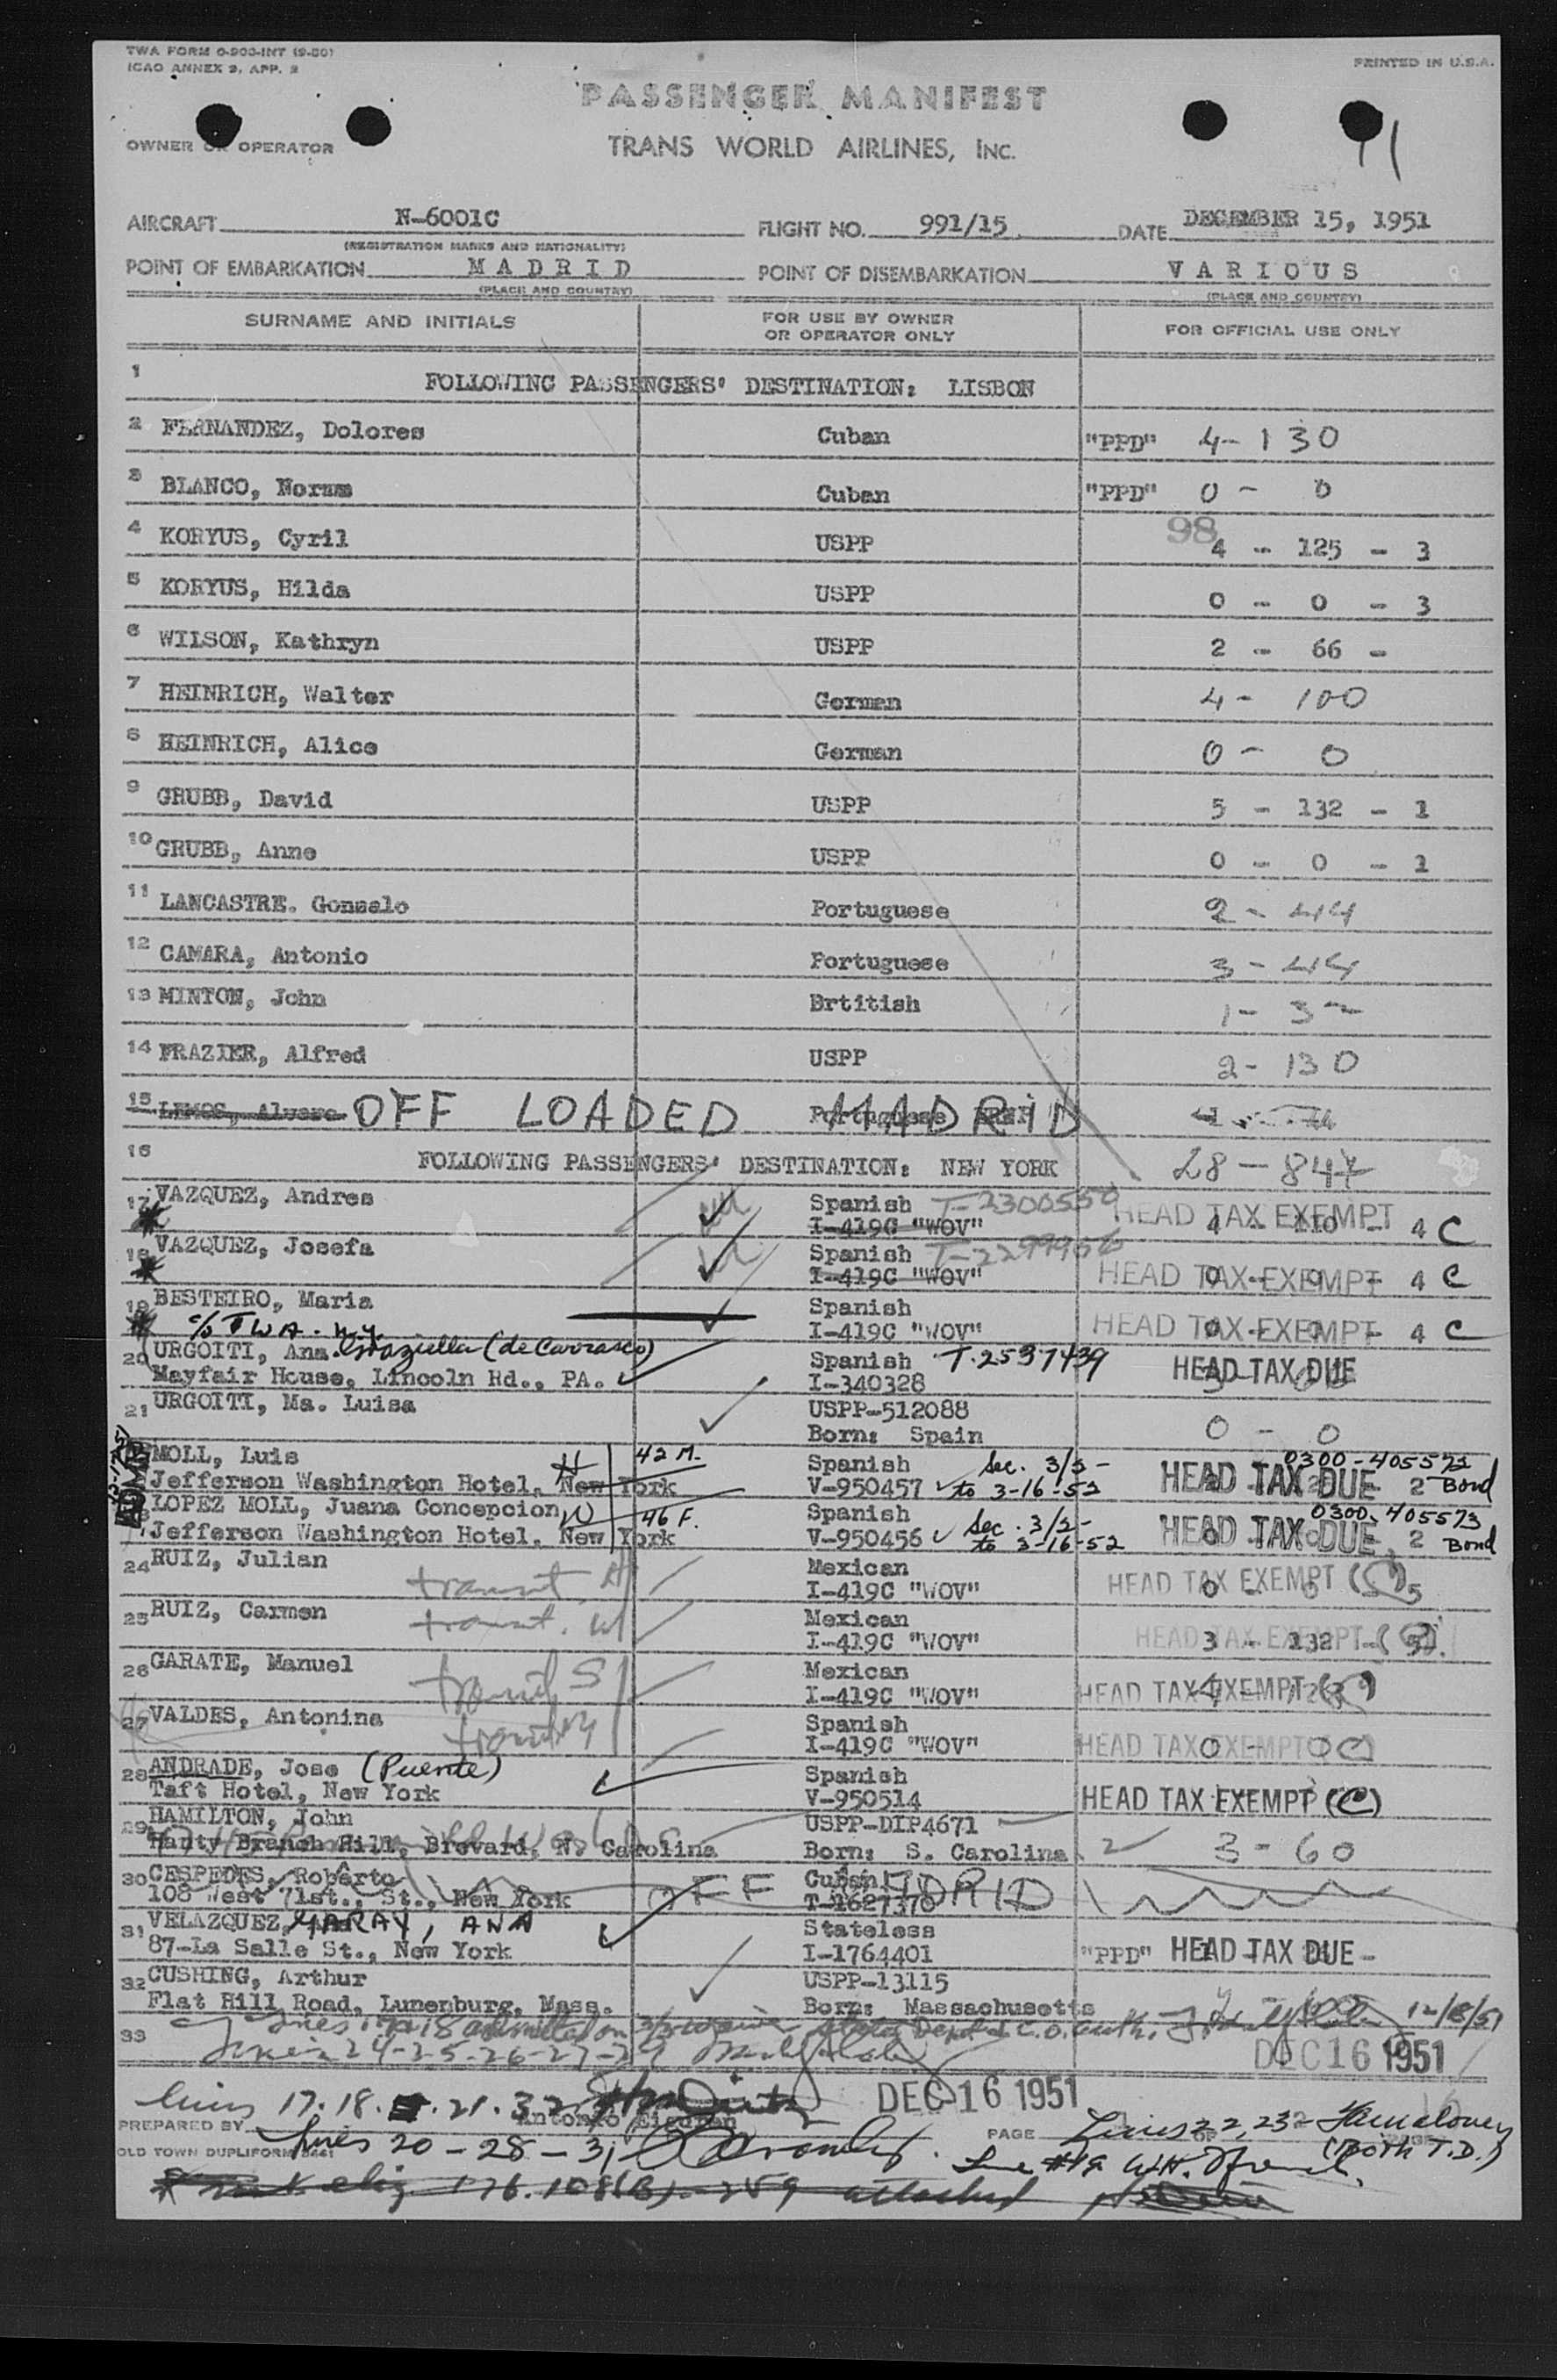 TWA FORM O-900-INT (9-50)
ICAO ANNEX 9, APP. 2
PRINTED IN U.S.A.
PASSENGER MANIFEST
OWNER OR OPERATOR
TRANS WORLD AIRLINES, INC.
AIRCRAFT N-6001C FLIGHT NO. 991/15. DATE DECEMBER 15, 1951
(REGISTRATION MARKS AND NATIONALITY)
POINT OF EMBARKATION MADRID POINT OF DISEMBARKATION VARIOUS
(PLACE AND COUNTRY) (PLACE AND COUNTRY)
SURNAME AND INITIALS FOR USE BY OWNER OR OPERATOR ONLY FOR OFFICIAL USE ONLY
1 FOLLOWING PASSENGERS' DESTINATION: LISBON
2 FERNANDEZ, Dolores Cuban "PPD" 4-130
3 BLANCO, Norma Cuban "PPD" 0 - 0
98
4 KORYUS, Cyril USPP 4 - 125 - 3
5 KORYUS, Hilda USPP 0 - 0 - 3
6 WILSON, Kathryn USPP 2 - 66 -
7 HEINRICH, Walter German 4 - 100
8 HEINRICH, Alice German 0 - 0
9 GRUBB, David USPP 5 - 132 - 1
10 GRUBB, Anne USPP 0 - 0 - 1
11 LANCASTRE. Gonsalo Portuguese 2 - 44
12 CAMARA, Antonio Portuguese 3 - 44
13 MINTON, John Brtitish 1 - 32
14 FRAZIER, Alfred USPP 2 - 130
15 LEMOS, Alvaro OFF LOADED MADRID Portuguese
16 FOLLOWING PASSENGERS' DESTINATION: NEW YORK 28 - 847
17 VAZQUEZ, Andres Spanish T-2300550
I-419C "WOV" HEAD TAX EXEMPT 4 - 110 - 4 C
18 VAZQUEZ, Josefa Spanish
I-419C "WOV" HEAD TAX EXEMPT 0 - 0 - 4 C
19 BESTEIRO, Maria Spanish
c/o TWA. N.Y. I-419C "WOV" HEAD TAX EXEMPT 4 C
20 URGOITI, Ana. Graziella (de Carrasco) Spanish T-2537439
Mayfair House, Lincoln Rd., PA. I-340328 HEAD TAX DUE
21 URGOITI, Ma. Luisa USPP-512088
Born: Spain 0 - 0
MOLL, Luis H 42 M. Spanish Sec. 3/3- 0300-405572
Jefferson Washington Hotel, New York V-950457 to 3-16-52 HEAD TAX DUE 2 Bond
LOPEZ MOLL, Juana Concepcion W 46 F. Spanish Sec. 3/3- 0300-405573
Jefferson Washington Hotel, New York V-950456 to 3-16-52 HEAD TAX DUE 2 Bond
24 RUIZ, Julian transit H Mexican
I-419C "WOV" HEAD TAX EXEMPT (C) 5
25 RUIZ, Carmen transit. W Mexican
I-419C "WOV" HEAD TAX EXEMPT 3 - 132
26 GARATE, Manuel transit S Mexican
I-419C "WOV" HEAD TAX EXEMPT
27 VALDES, Antonina transit Spanish
I-419C "WOV" HEAD TAX EXEMPT
28 ANDRADE, Jose (Puente) Spanish
Taft Hotel, New York V-950514 HEAD TAX EXEMPT (C)
29 HAMILTON, John USPP-DIP4671
Hanty Branch Hill, Brevard, N. Carolina Born: S. Carolina 3 - 60
30 CESPEDES, Roberto OFF MADRID Cuban
108 West 71st., St., New York T-1627370
31 VELAZQUEZ, GARAY, ANA Stateless
87-La Salle St., New York I-1764401 "PPD" HEAD TAX DUE
32 CUSHING, Arthur USPP-13115
Flat Hill Road, Lunenburg, Mass. Born: Massachusetts
33 Lines 17 & 18 admitted on waiver State Dept & C.O. auth. 12/8/51
Lines 24-25-26-27-29
DEC 16 1951
Lines 17. 18. 21. 32 DEC 16 1951
PREPARED BY Antonio PAGE OF
OLD TOWN DUPLIFORM
Lines 20 - 28 - 31
Lines 22, 23 -
(Both T.D.)
Line #19
176.108(B) - 259 attached